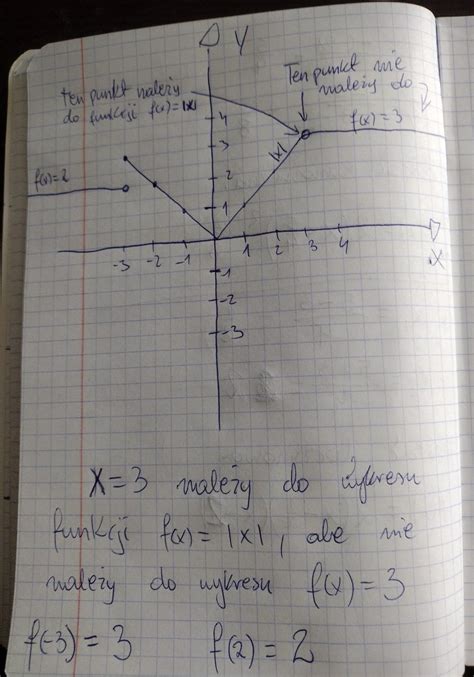 Y
Ten punkt należy
do funkcji f(x)=|x|
Ten punkt nie
należy do
f(x)=3
|x|
f(x)=2
4
3
2
1
-3 -2 -1 1 2 3 4
X
-1
-2
-3
X=3 należy do wykresu
funkcji f(x)=|x|, ale nie
należy do wykresu f(x)=3
f(-3)=3 f(2)=2